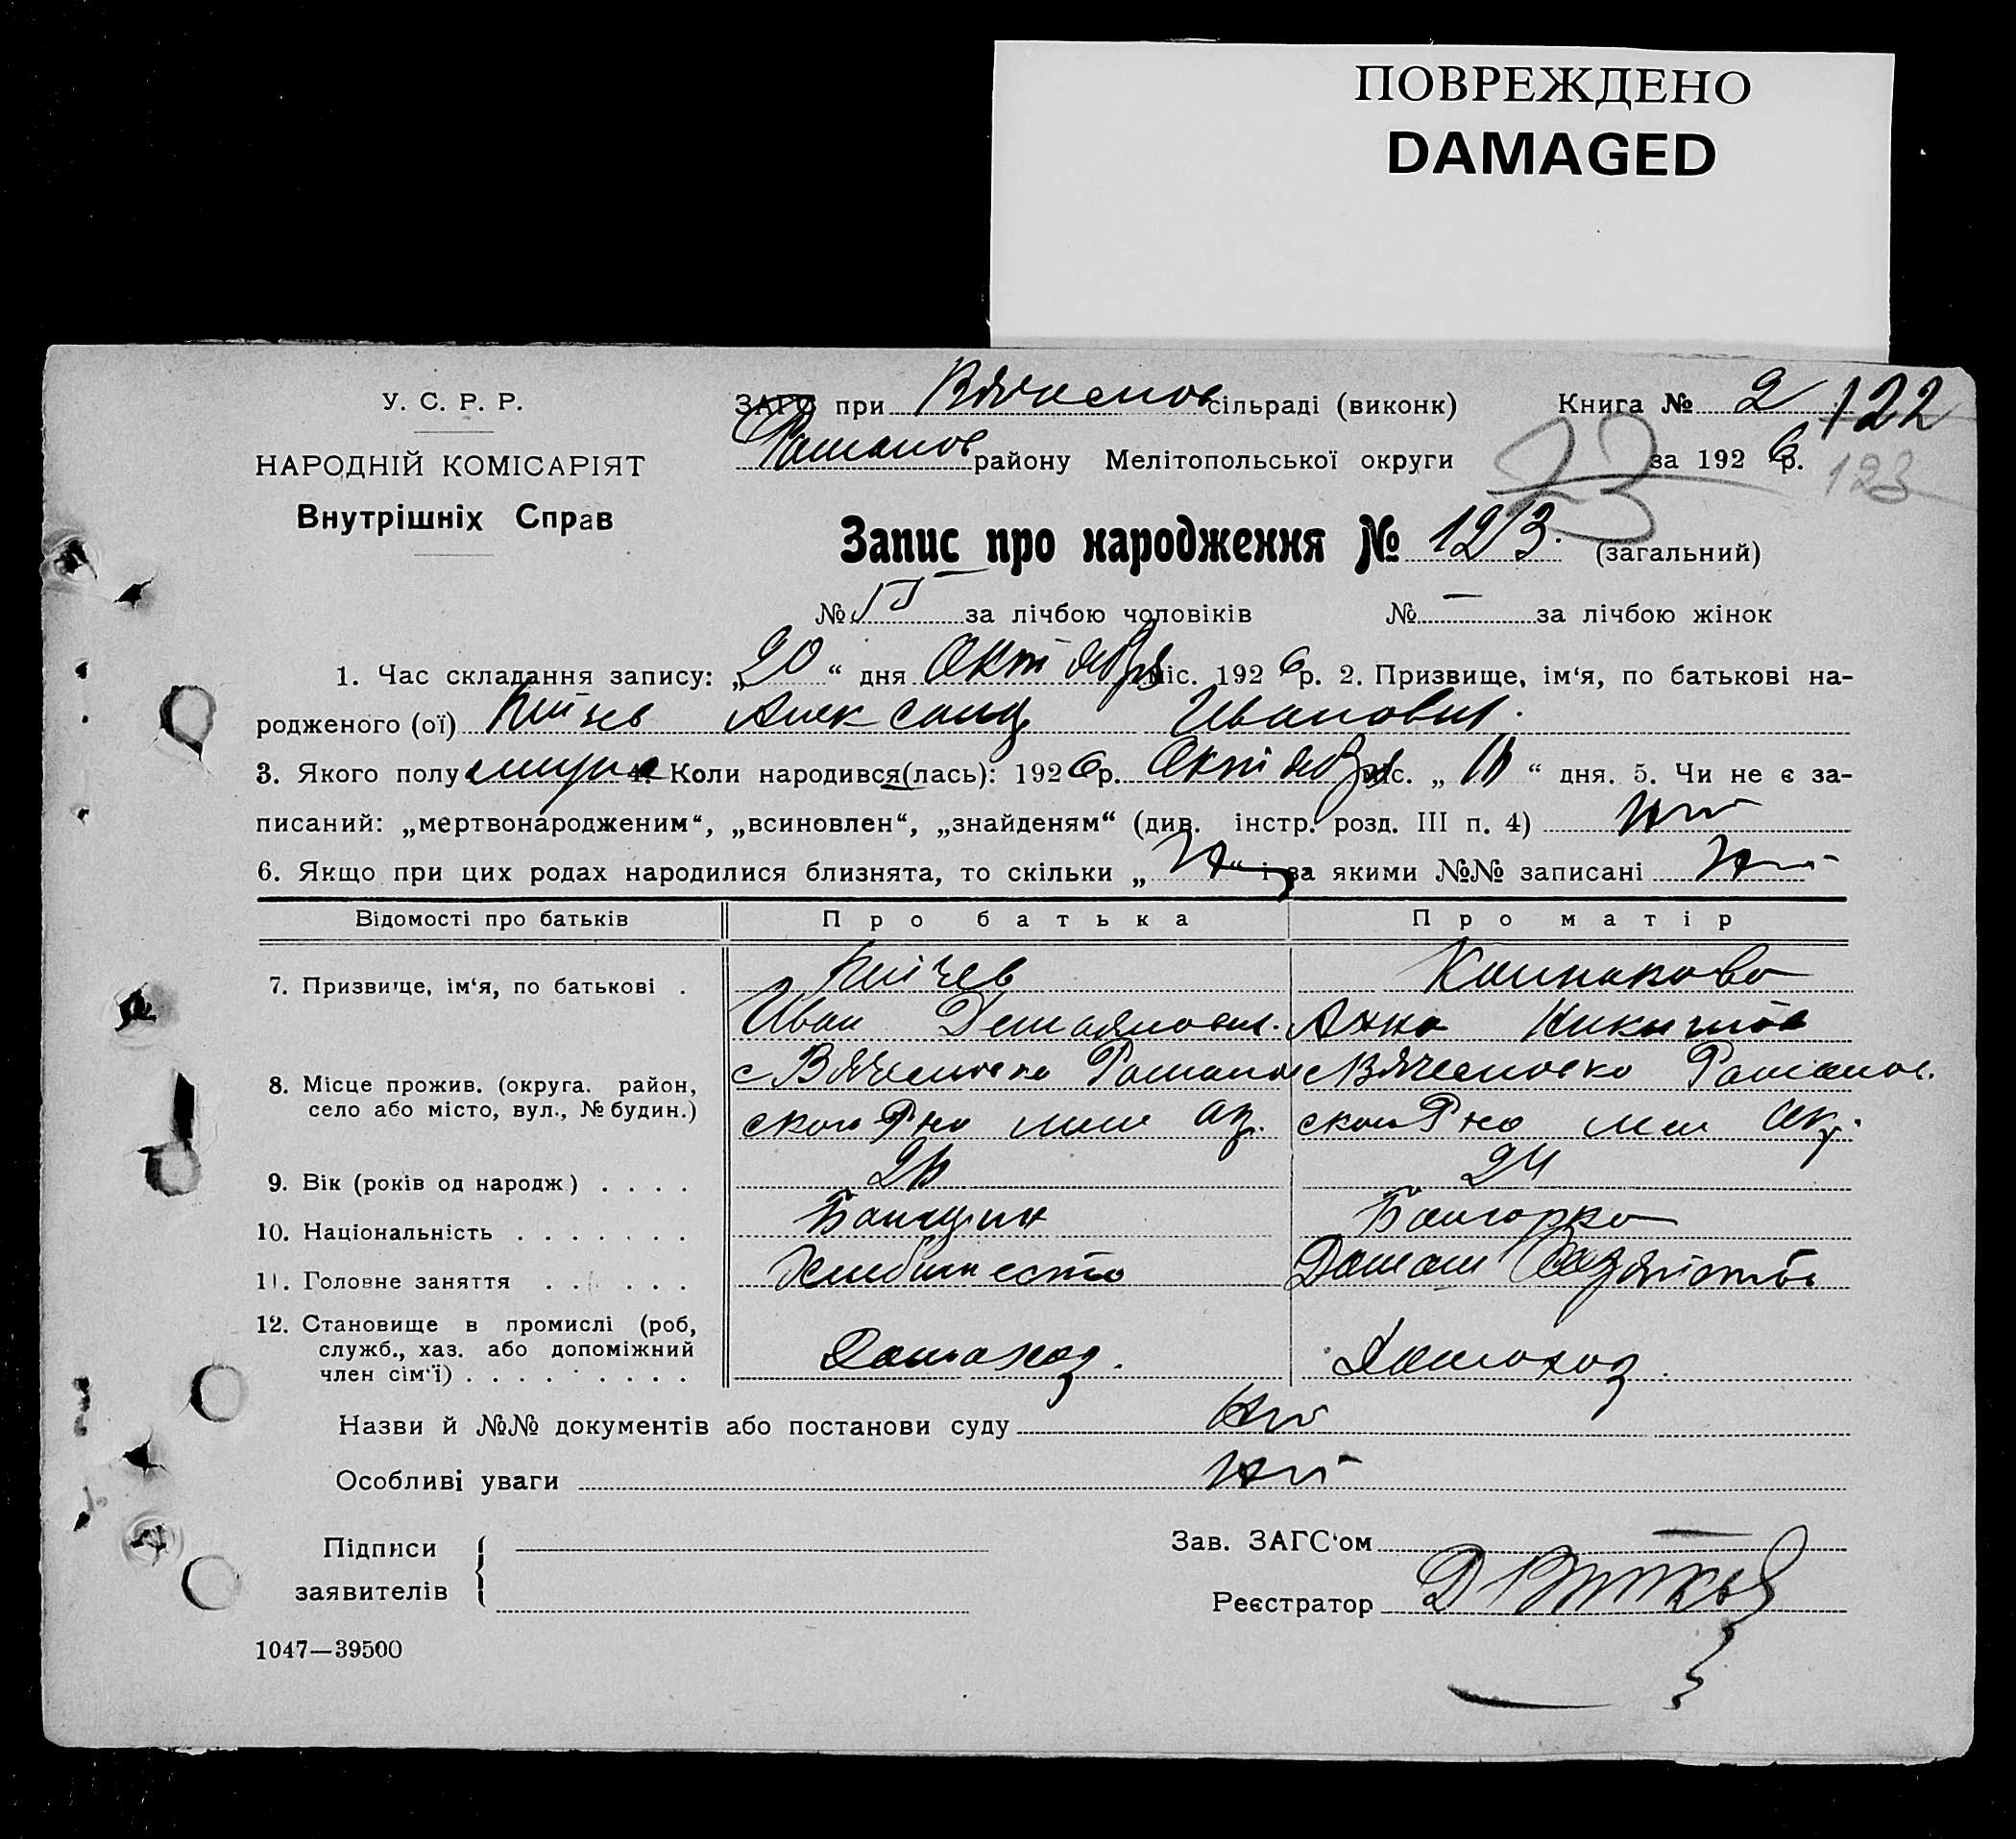 ПОВРЕЖДЕНО
DAMAGED
У. С. Р. Р.
НАРОДНІЙ КОМІСАРІЯТ
Внутрішніх Справ
ЗАГС при сільраді (виконк) Книга № 2 122
Романов району Мелітопольської округи за 1926 р. 123
23
Запис про народження № 123. (загальний)
№ за лічбою чоловіків № — за лічбою жінок
1. Час складання запису: „20“ дня Октября міс. 1926 р. 2. Призвище, ім‘я, по батькові на-
родженого (ої) Александ Иванович.
3. Якого полу 4. Коли народився(лась): 1926 р. Октября міс. „ “ дня. 5. Чи не є за-
писаний: „мертвонародженим“, „всиновлен“, „знайденям“ (див. інстр. розд. III п. 4) нет
6. Якщо при цих родах народилися близнята, то скільки „ “ і за якими №№ записані нет
Відомості про батьків Про батька Про матір
7. Призвище, ім‘я, по батькові .
Иван Анна
8. Місце прожив. (округа. район,
село або місто, вул., № будин.)
с Вячеславка с Вячеславка
ского Р-на мел ок. ского Р-на мел ок.
9. Вік (років од народж) . . . . 24
10. Національність . . . . . . . Болгарин Болгарка
11. Головне заняття . . . . . . Домаш
12. Становище в промислі (роб,
служб., хаз. або допоміжний
член сім‘ї) . . . . . . . . . Домохоз. Домохоз.
Назви й №№ документів або постанови суду нет
Особливі уваги нет
Підписи
заявителів
Зав. ЗАГС‘ом —
Реєстратор
1047—39500